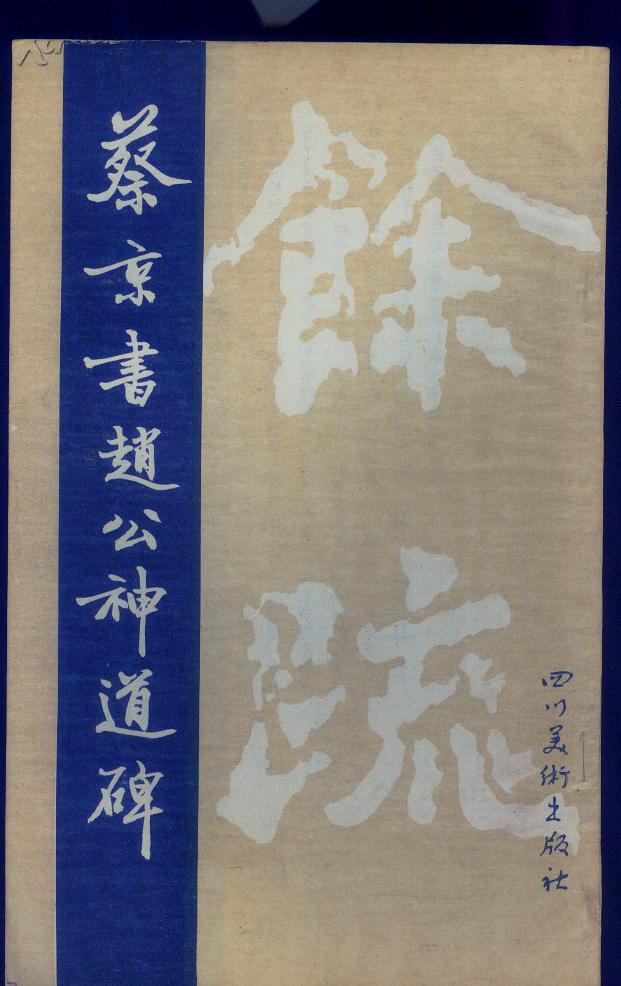 蔡京書趙公神道碑
餘疏
四川美術出版社